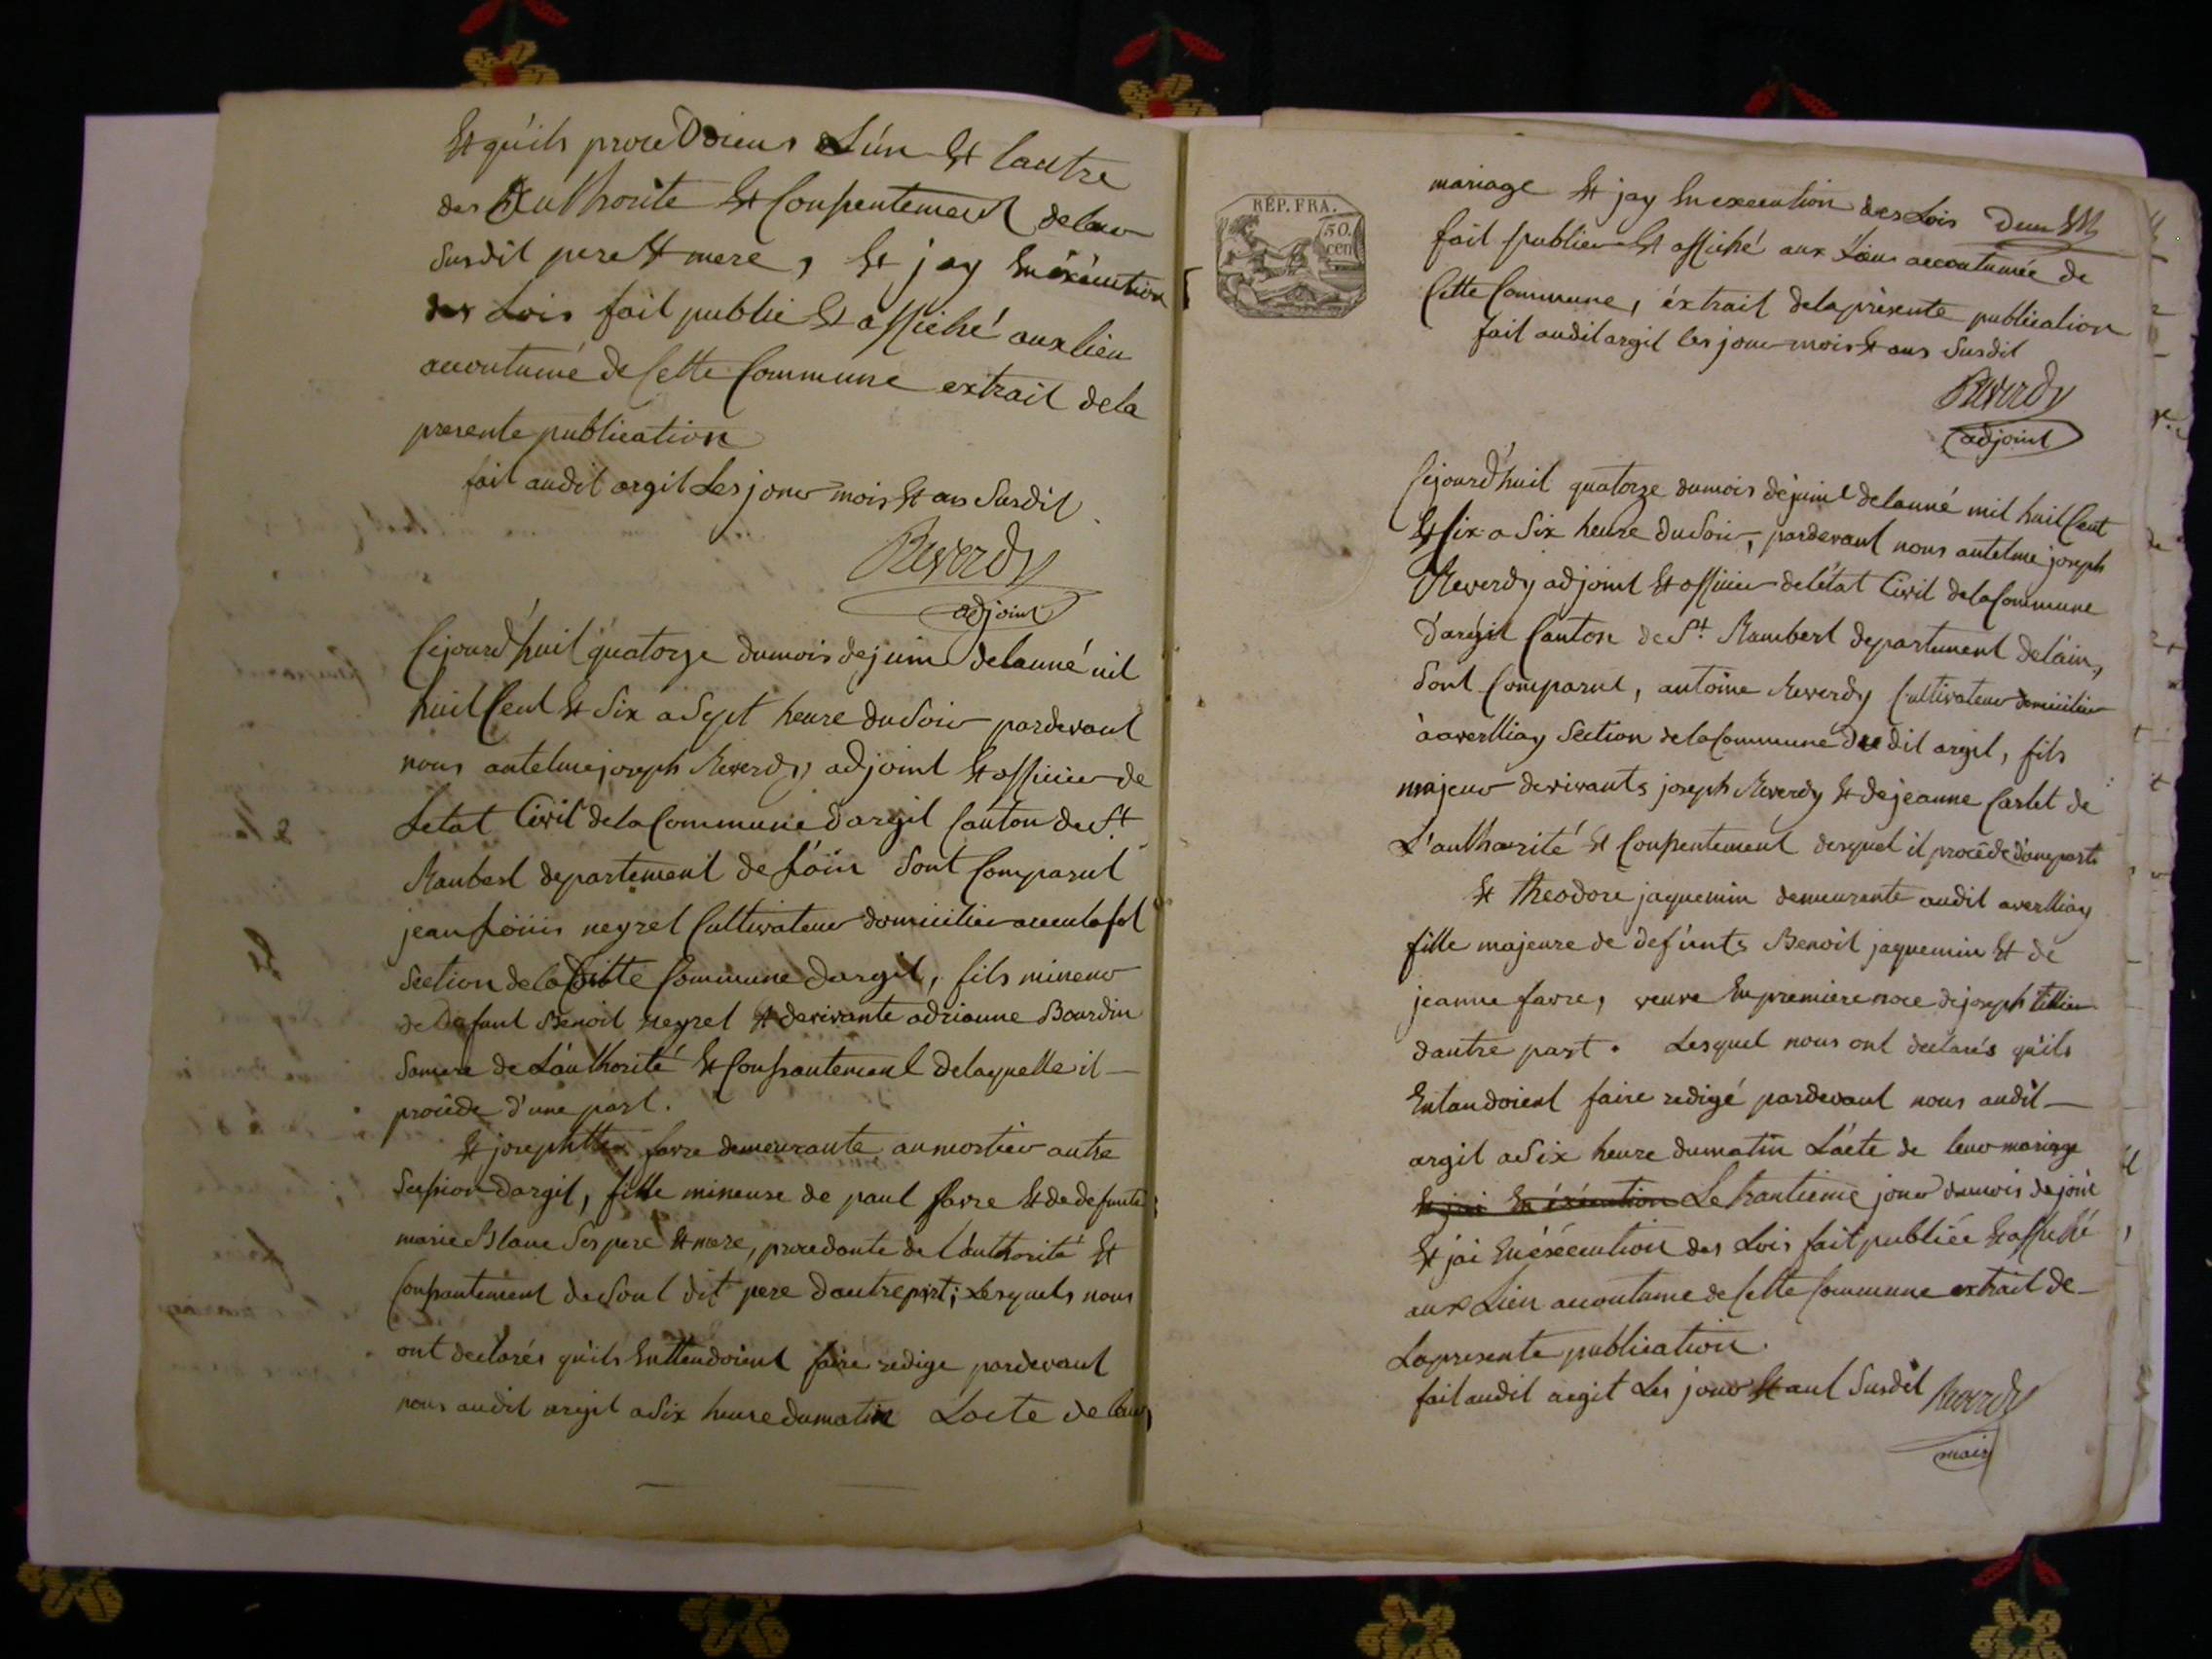 Et qu'ils procedoient L'un Et lautre
des authorite Et Consentement deleur
Susdit pere Et mere, Et jay En éxécution
des Lois fait publié Et affiché aux lieu
acoutumé de Cette Commune extrait dela
presente publication
fait audit argit Les jour mois Et ans Susdit
Reverdy
adjoint
Cejourd'huit quatorze dumois dejuin delanné mil
huit Cent Et Six a Sept heure du Soir pardevant
nous antelme joseph Reverdy adjoint Et officier de
Letat Civil dela Commune d'argit Canton de St
Rambert departement de L'ain Sont Comparut
jean Loüis neyret Cultivateur domicilier
Section de la ditte Commune dargit, fils mineur
de Defunt Benoit neyret Et devivante adrianne Bourdin
Samere de L'authorité Et Consantement delaquelle il
procède d'une part.
Et josephtte favre demeurante aumortier autre
Session dargit, fille mineure de paul favre Et de defunte
marie Blanc Ses pere Et mere, procedante de l'authorité Et
Consantement de Sont dit pere dautre part; Lesquels nous
ont declarés qu'ils Enttendoient faire redige pardevant
nous audit argit a Six heure dumatin Lacte de leur
RÉP. FRA.
50.
cen
mariage Et jay En execution des Lois
fait publier Et affiché aux Lieux accoutumée de
Cette Commune, éxtrait dela présente publication
fait audit argit les jour mois Et ans Susdit
Reverdy
adjoint
Cejourd'huit quatorze dumois dejuint delanné mil huit Cent
Et Six a Six heure du Soir, pardevant nous antelme joseph
Reverdy adjoint Et officier de létat Civil dela Commune
d'argit Canton de St. Rambert departement de l'ain,
Sont Comparut, antoine Reverdy Cultivateur domicilier
à averlliay Section dela Commune du dit argit, fils
majeur devivants joseph Reverdy Et de jeanne Carlet de
L'authorité Et Consentement desquel il procède d'une part
Et theodore jaquemin demeurante audit averlliay
fille majeure de defunts Benoit jaquemin Et de
jeanne favre, veuve En premiere noce de joseph tillier
dautre part. Lesquel nous ont declarés qu'ils
Entandoient faire redigé pardevant nous audit
argit a Six heure dumatin L'acte de leur mariage
Et jai En éxécution Le trantieme jour dumois de juin
Et jai En éxécution des Lois fait publiée Et affiché
aux Lieu acoutume de Cette Commune extrait de
La presente publication.
fait audit argit Les jour Et ant Susdit Reverdy